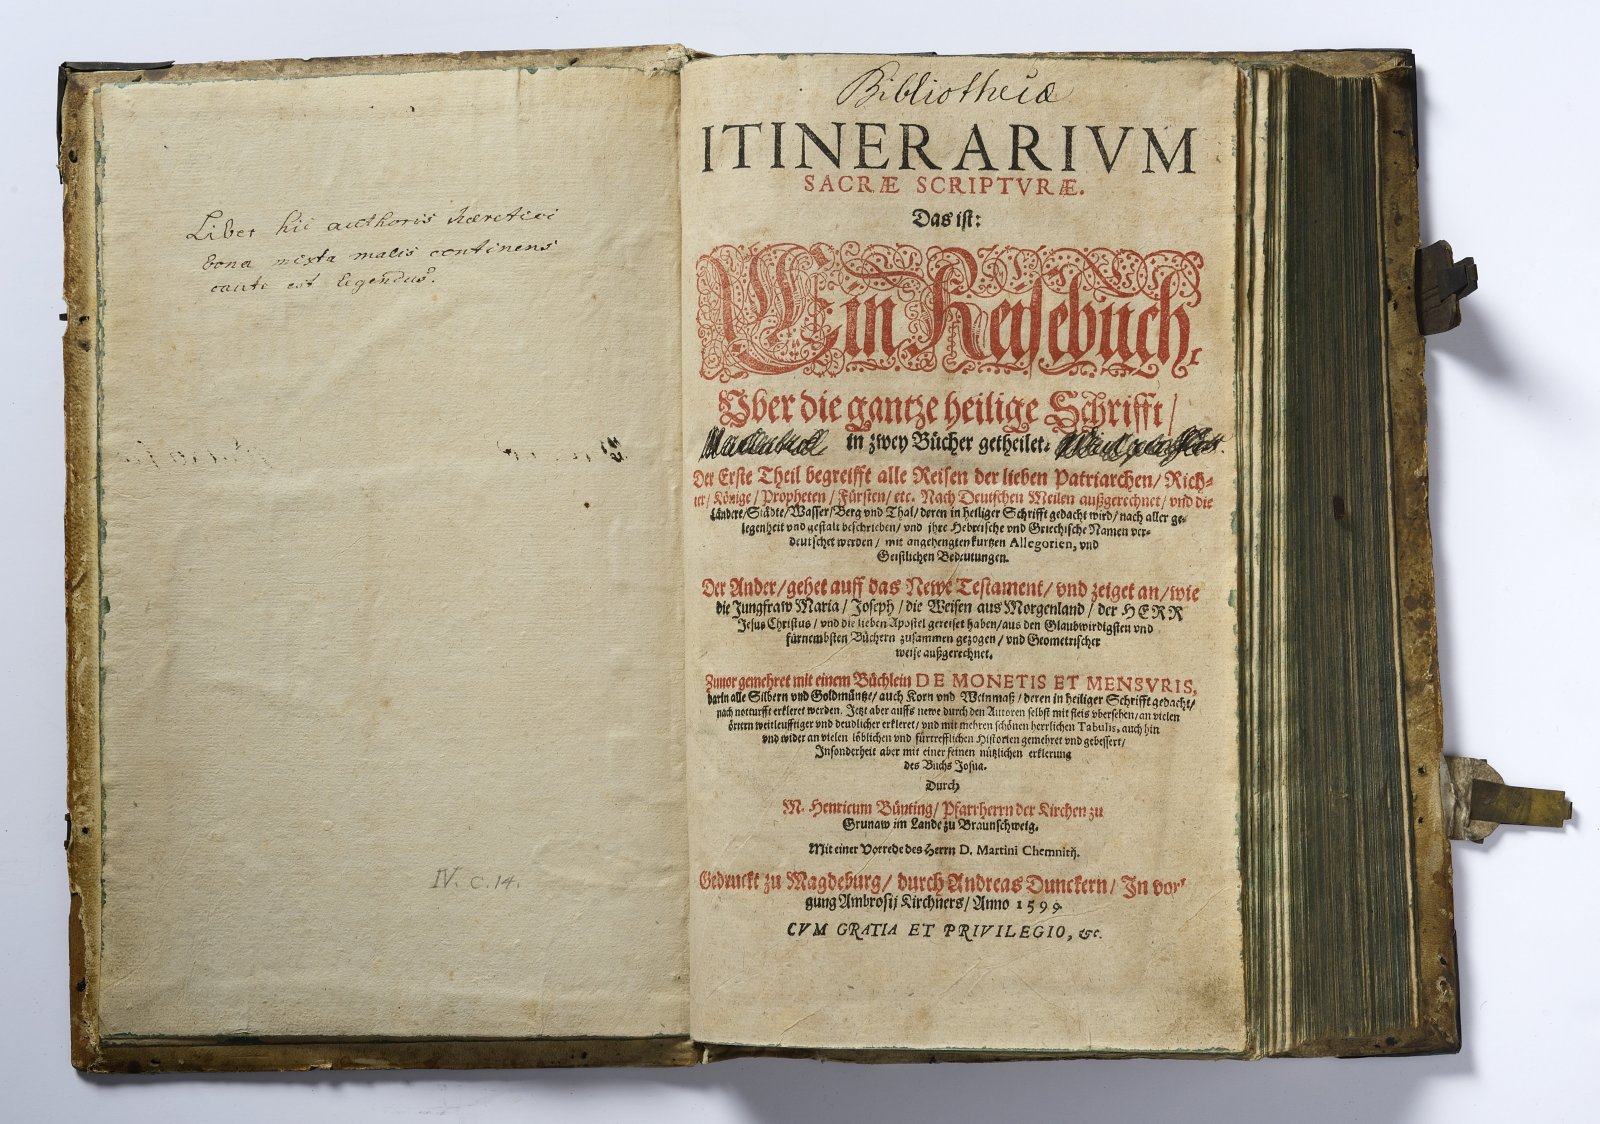 Liber hic authoris hæretici
bona mixta malis continens
caute est legendus.
IV. C. 14.
Bibliothecæ
ITINERARIVM
SACRÆ SCRIPTVRÆ.
Das ist:
Ein Reisebuch,
Vber die gantze heilige Schrifft /
in zwey Bücher getheilet.
Der Erste Theil begreifft alle Reisen der lieben Patriarchen / Rich-
ter / Könige / Propheten / Fürsten / etc. Nach Deutschen Meilen außgerechnet / vnd die
Ländere / Städte / Wasser / Berg vnd Thal / deren in heiliger Schrifft gedacht wird / nach aller ge-
legenheit vnd gestalt beschrieben / vnd ihre Hebreische vnd Griechische Namen ver-
deutschet werden / mit angehengten kurtzen Allegorien, vnd
Geistlichen Bedeutungen.
Der Ander / gehet auff das Newe Testament / vnd zeiget an / wie
die Jungfraw Maria / Joseph / die Weisen aus Morgenland / der HERR
Jesus Christus / vnd die lieben Apostel gereiset haben / aus den Glaubwirdigsten vnd
fürnembsten Büchern zusammen gezogen / vnd Geometrischer
weise außgerechnet.
Zuuor gemehret mit einem Büchlein DE MONETIS ET MENSVRIS,
darin alle Silbern vnd Goldmüntze / auch Korn vnd Weinmaß / deren in heiliger Schrifft gedacht /
nach notturfft erkleret werden. Jetzt aber auffs newe durch den Autoren selbst mit fleis vbersehen / an vielen
örtern weitleufftiger vnd deudlicher erkleret / vnd mit mehren schönen herrlichen Tabulis, auch hin
vnd wider an vielen löblichen vnd fürtrefflichen Historien gemehret vnd gebessert /
Insonderheit aber mit einer feinen nützlichen erklerung
des Buchs Josua.
Durch
M. Henricum Bünting / Pfarrherrn der Kirchen zu
Grunaw im Lande zu Braunschweig.
Mit einer Vorrede des Herrn D. Martini Chemnitij.
Gedruckt zu Magdeburg / durch Andreas Dunckern / In vor
gung Ambrosij Kirchners / Anno 1599.
CVM GRATIA ET PRIVILEGIO, &c.